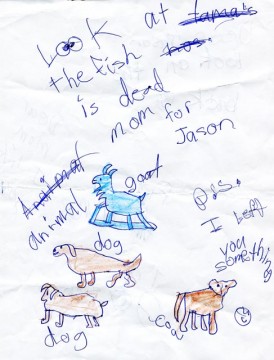 Look at
the fish
is dead
mom for
Jason
animal
goat
dog
dog
cow
P.S.
I Left
you
something